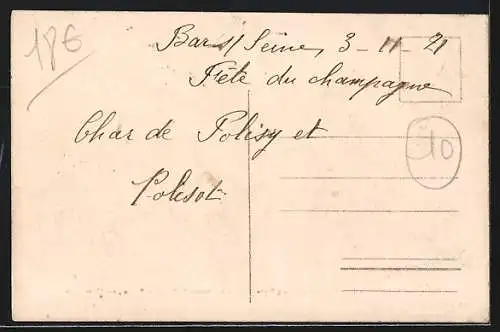 18€
Bar s/ Seine, 3-11-21
Fête du champagne
Char de Polisy et
Polisot
10